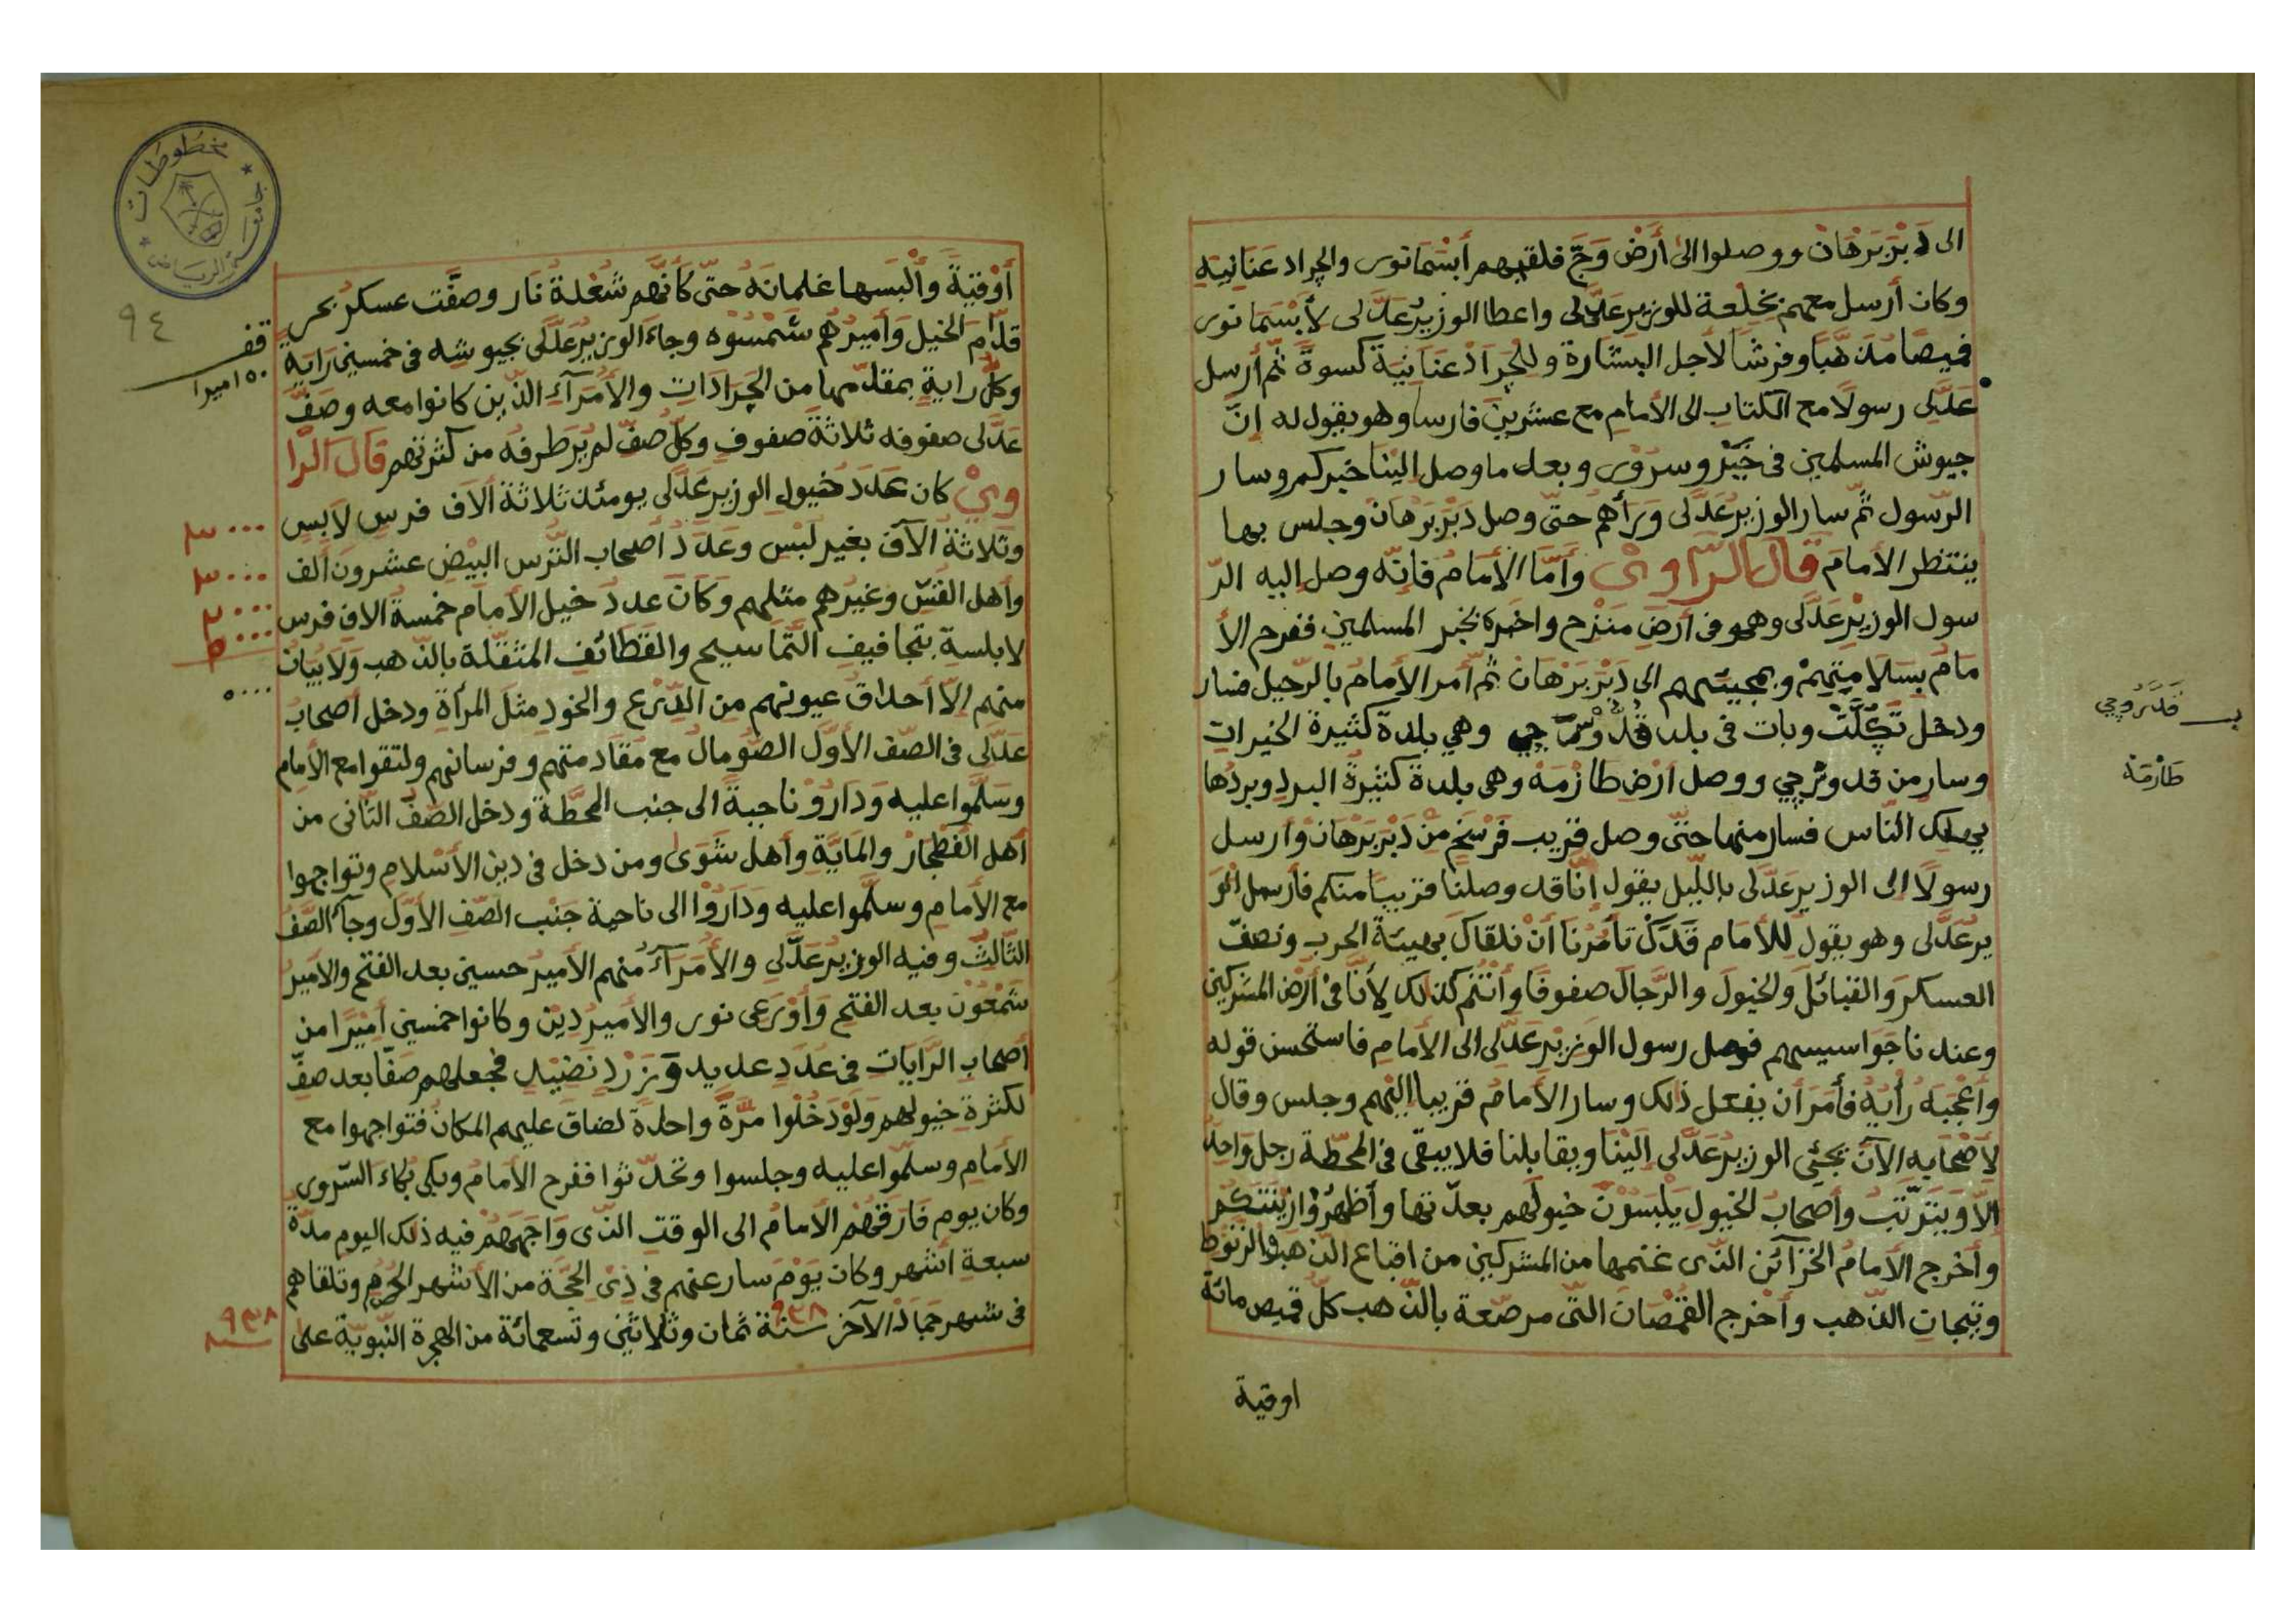 الى دَبْرَبَرْهَانْ ووصلوا الى أَرْض وَجّ فلقيهم أَبْسَمَا نوى والجراد عَنَانِيَه
وكان أرسل معهم بخِلْعة للوزير عَدَّلى واعطا الوزيرُ عَدَّلى لأَبْسَمَا نوى
قميصًا مُذهَّبا وفرشًا لأجل البشارة وللجَرَادْ عَنَانِيَة كسوةً ثمّ أرسل
عَدَّلى رسولًا مع الكتاب الى الأمام مع عشرين فارسا وهو يقول له إنّ
جيوش المسلمين فى خَيْر وسرُوْر وبعد ما وصل إلَيْنا خبركم وسار
الرّسول ثمّ سار الوزيرُ عَدَّلى وَرَأهم حتّى وصل دَبْرَبَرْهَانْ وجلس بها
ينتظر الأمامَ قال الرّاوىْ وأَمَّا الأمَامُ فإنّه وصل إليه الرّ
سول الوزيْرِ عَدَّلى وهو فى أرضِ مَنَزِح واخبره بخبر المسلمين ففرح الأ
مَامُ بسَلَامِتِهمْ وبمجيئهم الى دَبْرَبَرْهَانْ ثمّ أمر الأمامُ بالرّحيل فسار
ودخل تَكُلَّتْ وبات فى بلد قَدْوَسْرَجي وهي بلدة كثيرة الخيرات
وسار من قدوثرجي ووصل أرْضِ طَازْمَهْ وهى بلدة كثيرةُ البرد وبردُها
يهلك النّاس فسار منها حتّى وصل قريب فَرْسَخٍ مِنْ دَبْرَبَرْهَانْ وأرسل
رسولًا إلى الوزير عَدَّلى باللّيل يقول إنّا قد وصلنا قريبا منكم فأرسل الو
يرُ عَدَّلى وهو يقول للأمام قَدَّكْ تَأمُرْنَا أَنْ نلقاك بهيئة الحرب ونصفّ
العسكر والقبائل والخيول والرّجال صفوفًا وأنْتُم كذلك لأنّا فى أرْض المشركين
وعندنا جَوَاسيسهم فوصل رسول الوزيْر عَدَّلى الى الأمامِ فاستحسن قوله
وأَعْجَبَهُ رأيُهُ فأمر أن يفعل ذلك وسار الأمامُ قريبا إليْهم وجلس وقال
لأصْحَابِهِ الآن يجئي الوزيرُ عَدَّلى إلَيْنا ويقابلنا فلا يبقى فى المحطّة رجل وَاحِدٌ
الّا ويَتَرتّبُ وأصحابُ الخيول يلبسُوْنَ خيولَهم بعدّتها وأظهِرُوْا زِيْنَتَكُم
وأخرج الأمامُ الخزآئن الذى غنمها من المشركين من اقباع الذّهب والرّنوط
وتيجات الذّهب وأخْرج القمْصَانَ التى مرصّعة بالذّهب كلّ قميص مائة
اوقية
قدروجي
طازمَه
أُوْقيّةً وألْبَسها غلمانَه حتّى كأنّهم شعْلة نَار وصفّت عسكر بحر
قدّام الخيل وَأميرُهُم شَمْسُوْه وجاء الوزيرُ عَدَّلى بجيوشه فى خمسين رَايَة
وكلُّ راية بمقدّمها من الجَرَادَاتِ والأمَرآءِ الذّين كانوا معه وصَفّ
عَدَّلى صفوفه ثلاثة صفوفٍ وكلُّ صفّ لم يُرَ طرفُه من كثرتهم قال الرّا
وىْ كان عَدَدُ خيول الوزير عَدَّلى يومئذ ثلاثةَ آلاف فرسٍ لابس
وثلاثة الآف بغير لَبْس وعَدَدُ أصحاب التُّرْس البيْض عشرون ألف
وأهل القُسِّ وغيرُهم مثلهم وكَانَ عددُ خيل الأمام خمسةَ الاف فرس
لابلسة بتجافيف التّمَاسيح والقَطَائف المثقّلة بالذّهب ولا يبان
منهم إلّا أحداقُ عيونهم من الدِّرْع والخوذ مثل المرأة ودخل أصحابُ
عَدَّلى فى الصّف الأوّل الصّومال مع مقادمتهم وفرسانهم ولتقوا مع الأمام
وسَلَّموا عليه ودَارُوْ ناحيةً الى جنب المحطّة ودخل الصّفّ الثّانى من
أهل الفطْجار والمَايَةِ وأهل شَوَى ومن دخل فى دين الأسْلام وتواجهوا
مع الأمامِ وسلَّموا عليه ودَارُوْا الى ناحية جَنْبِ الصّفِ الأوّل وجآءَ الصّفُ
الثّالثُ وفيه الوزيرُ عَدَّلى والأُمَرآءُ منهم الأميرُ حسين بعد الفتح والأميرُ
شَمْعُوْن بعد الفتح وَأوْرَعى نور والأميرُ دِيْن وكانوا خمسين أميْرًا من
أصحاب الرّايَاتِ فى عَدَدٍ عديد وَزَرْدٍ نَضِيْدٍ فجعلهم صَفّا بعد صفّ
لكثرة خيولهم وَلَوْ دَخَلُوا مَرَّةً واحدةً لضاق عليهم المكانُ فتواجهوا مع
الأمامِ وسلَّموا عليه وجلسوا وتحدّثوا ففرح الأمامُ وبكى بُكاءَ السّرور
وكان يوم فارقهُم الأمامُ الى الوقت الذّى وَاجَهَهُم فيه ذلك اليوم مدّةَ
سبعة أشهر وكان يَوْمَ سار عنهم فى ذى الحجّة من الأشهر الحرُم وتلقاهم
فى شهر جمادَ الآخر سنة ٩٣٨ ثمان وثلاثين وتسعمائة من الهجرة النّبويّة على
قف
٥٠ اميرا
٣٠٠٠
٣٠٠٠
٥٠٠٠
٩٣٨
٩٤
مخطوطات
جامعة الرياض